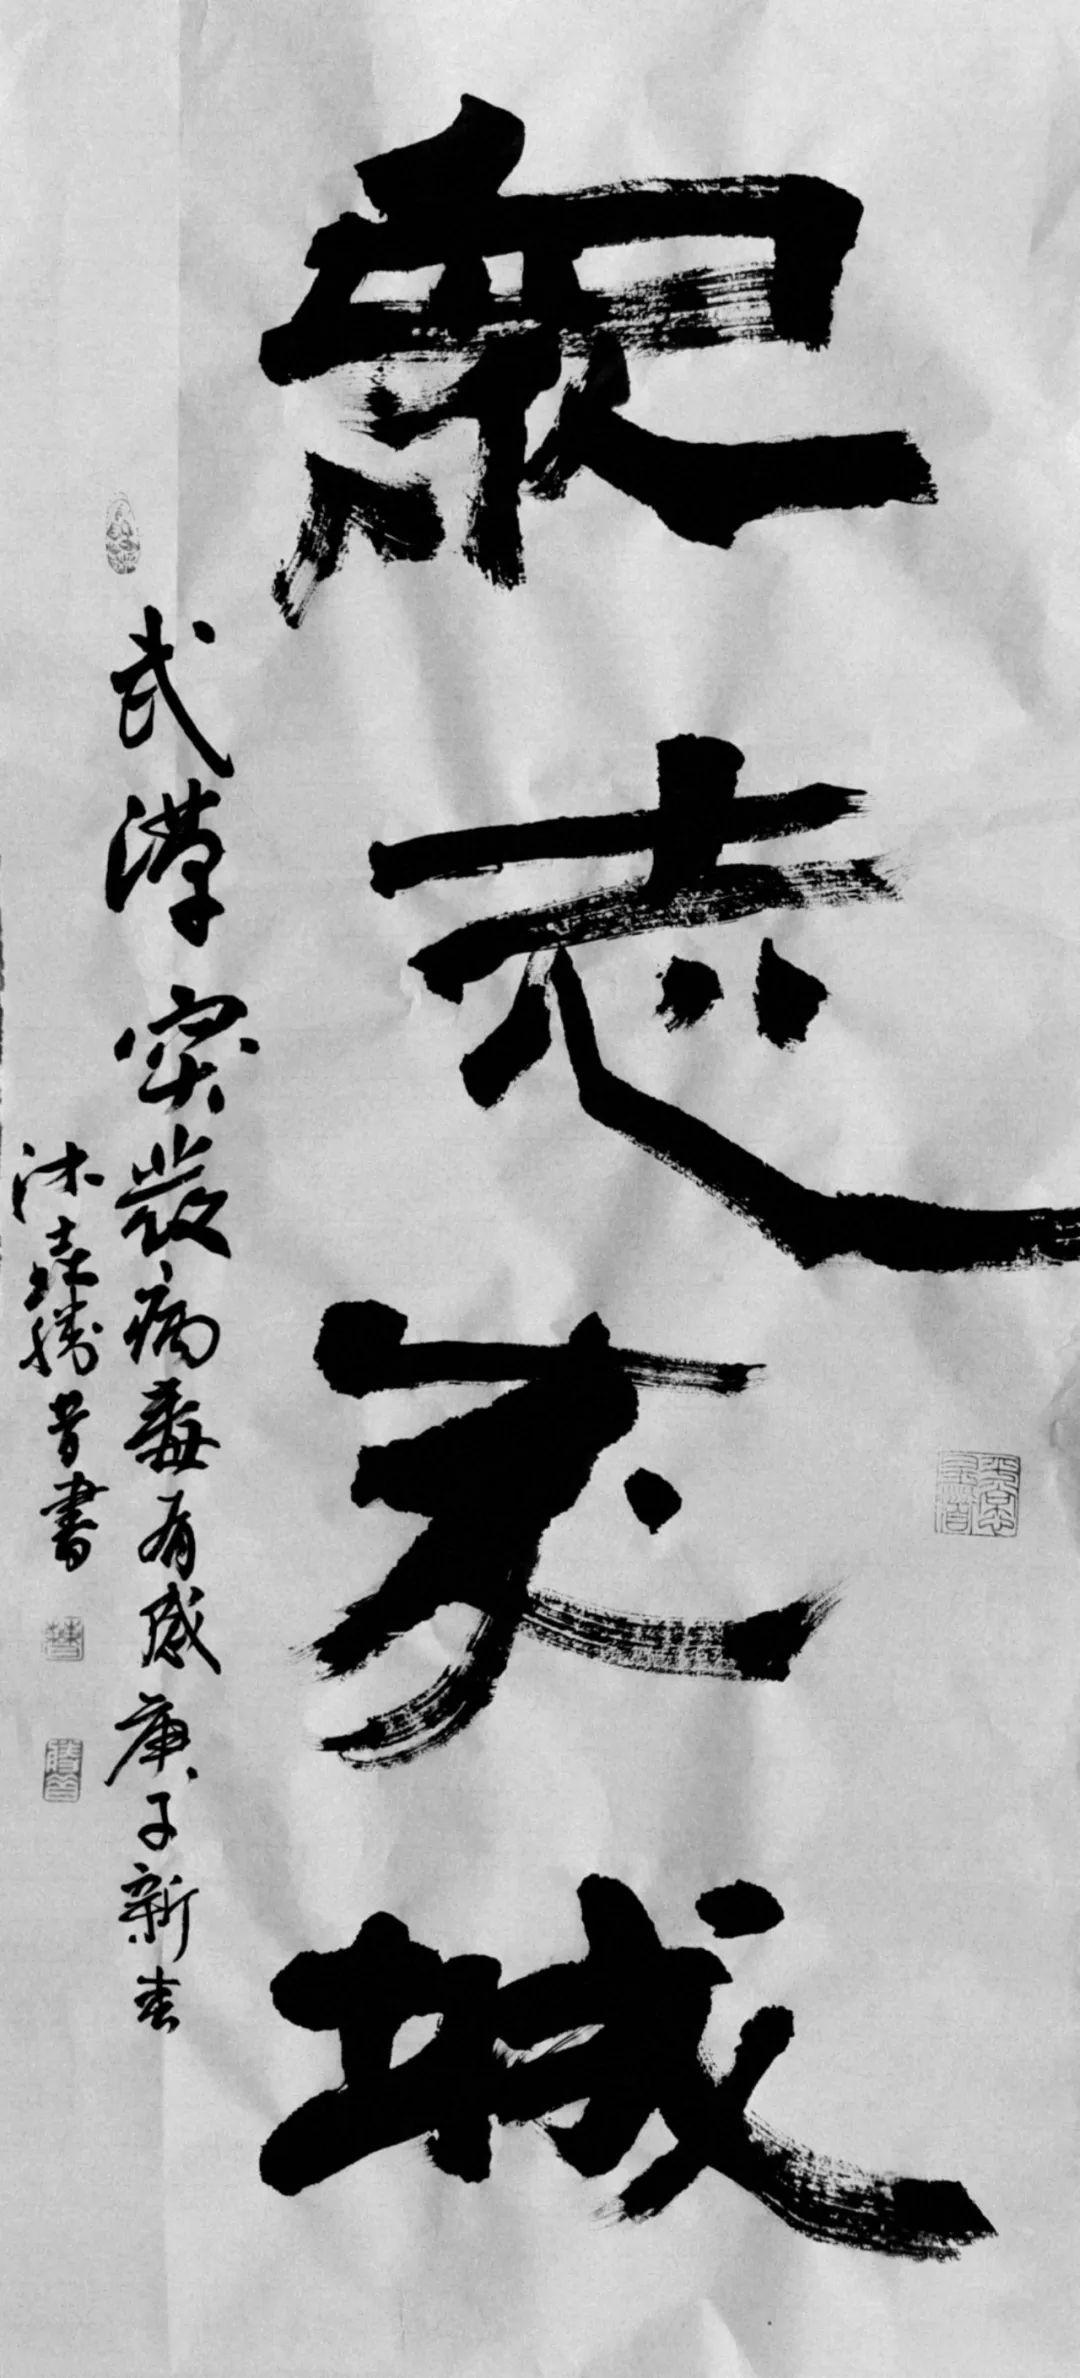 衆志成城
武漢突發病毒有感庚子新春
沐昔書